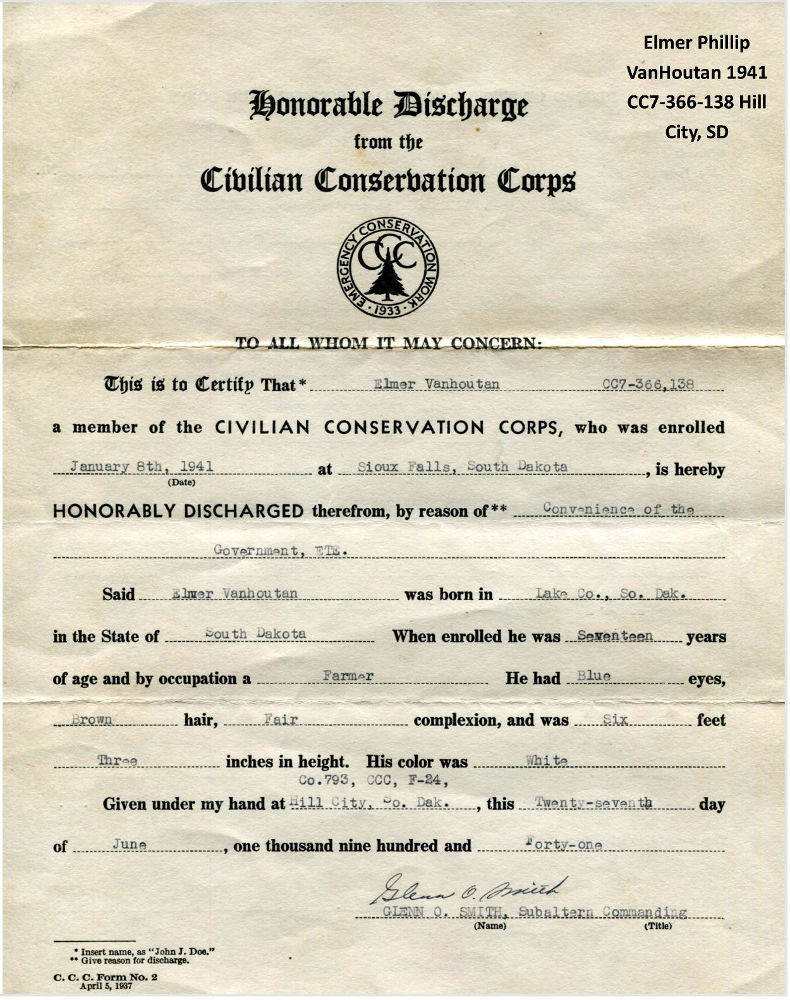 Elmer Phillip
VanHoutan 1941
CC7-366-138 Hill
City, SD
Honorable Discharge
from the
Civilian Conservation Corps
EMERGENCY CONSERVATION WORK
CCC
· 1933 ·
TO ALL WHOM IT MAY CONCERN:
This is to Certify That* Elmer Vanhoutan CC7-366,138
a member of the CIVILIAN CONSERVATION CORPS, who was enrolled
January 8th, 1941 at Sioux Falls, South Dakota, is hereby
(Date)
HONORABLY DISCHARGED therefrom, by reason of** Convenience of the
Government, ETE.
Said Elmer Vanhoutan was born in Lake Co., So. Dak.
in the State of South Dakota When enrolled he was Seventeen years
of age and by occupation a Farmer He had Blue eyes,
Brown hair, Fair complexion, and was Six feet
Three inches in height. His color was White
Co.793, CCC, F-24,
Given under my hand at Hill City, So. Dak., this Twenty-seventh day
of June, one thousand nine hundred and Forty-one
Glenn O. Smith
GLENN O. SMITH, Subaltern Commanding
(Name) (Title)
* Insert name, as "John J. Doe."
** Give reason for discharge.
C. C. C. Form No. 2
April 5, 1937